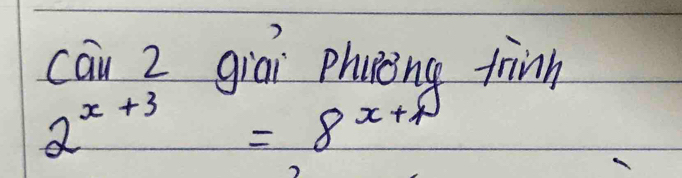 Câu 2 giải phương trình
2^{x+3} = 8^{x+1}